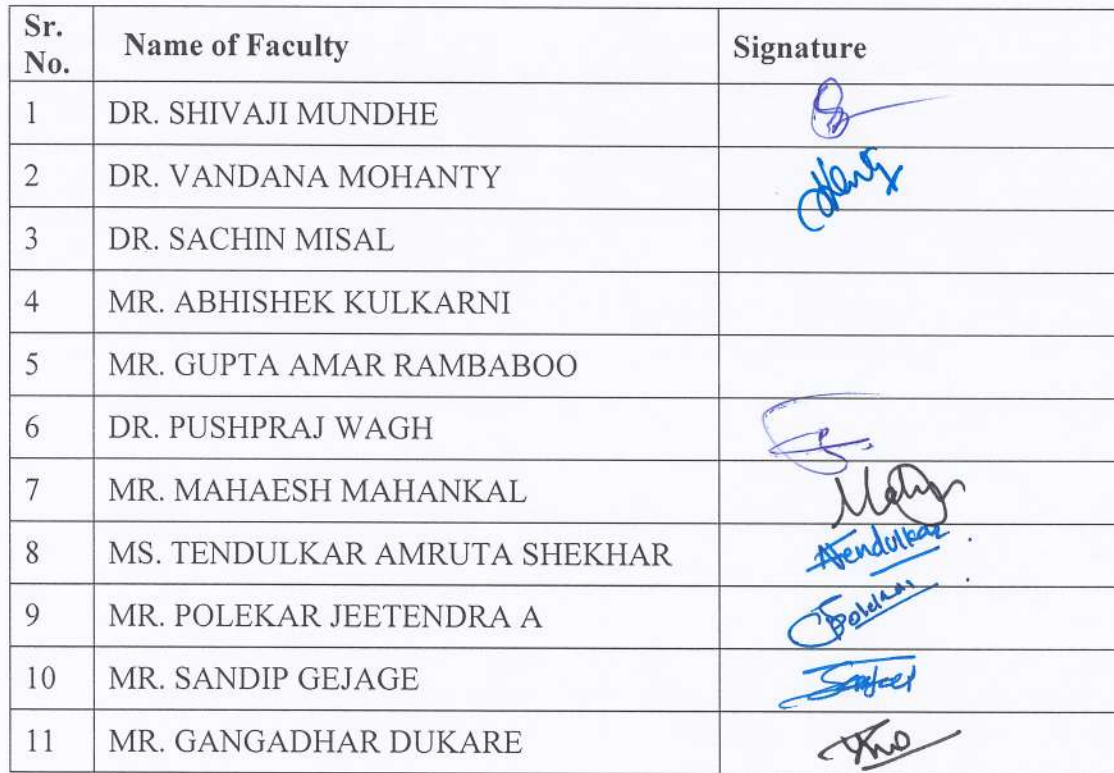 Sr. No. Name of Faculty Signature
1 DR. SHIVAJI MUNDHE
2 DR. VANDANA MOHANTY
3 DR. SACHIN MISAL
4 MR. ABHISHEK KULKARNI
5 MR. GUPTA AMAR RAMBABOO
6 DR. PUSHPRAJ WAGH
7 MR. MAHAESH MAHANKAL
8 MS. TENDULKAR AMRUTA SHEKHAR ATendulkar
9 MR. POLEKAR JEETENDRA A
10 MR. SANDIP GEJAGE
11 MR. GANGADHAR DUKARE